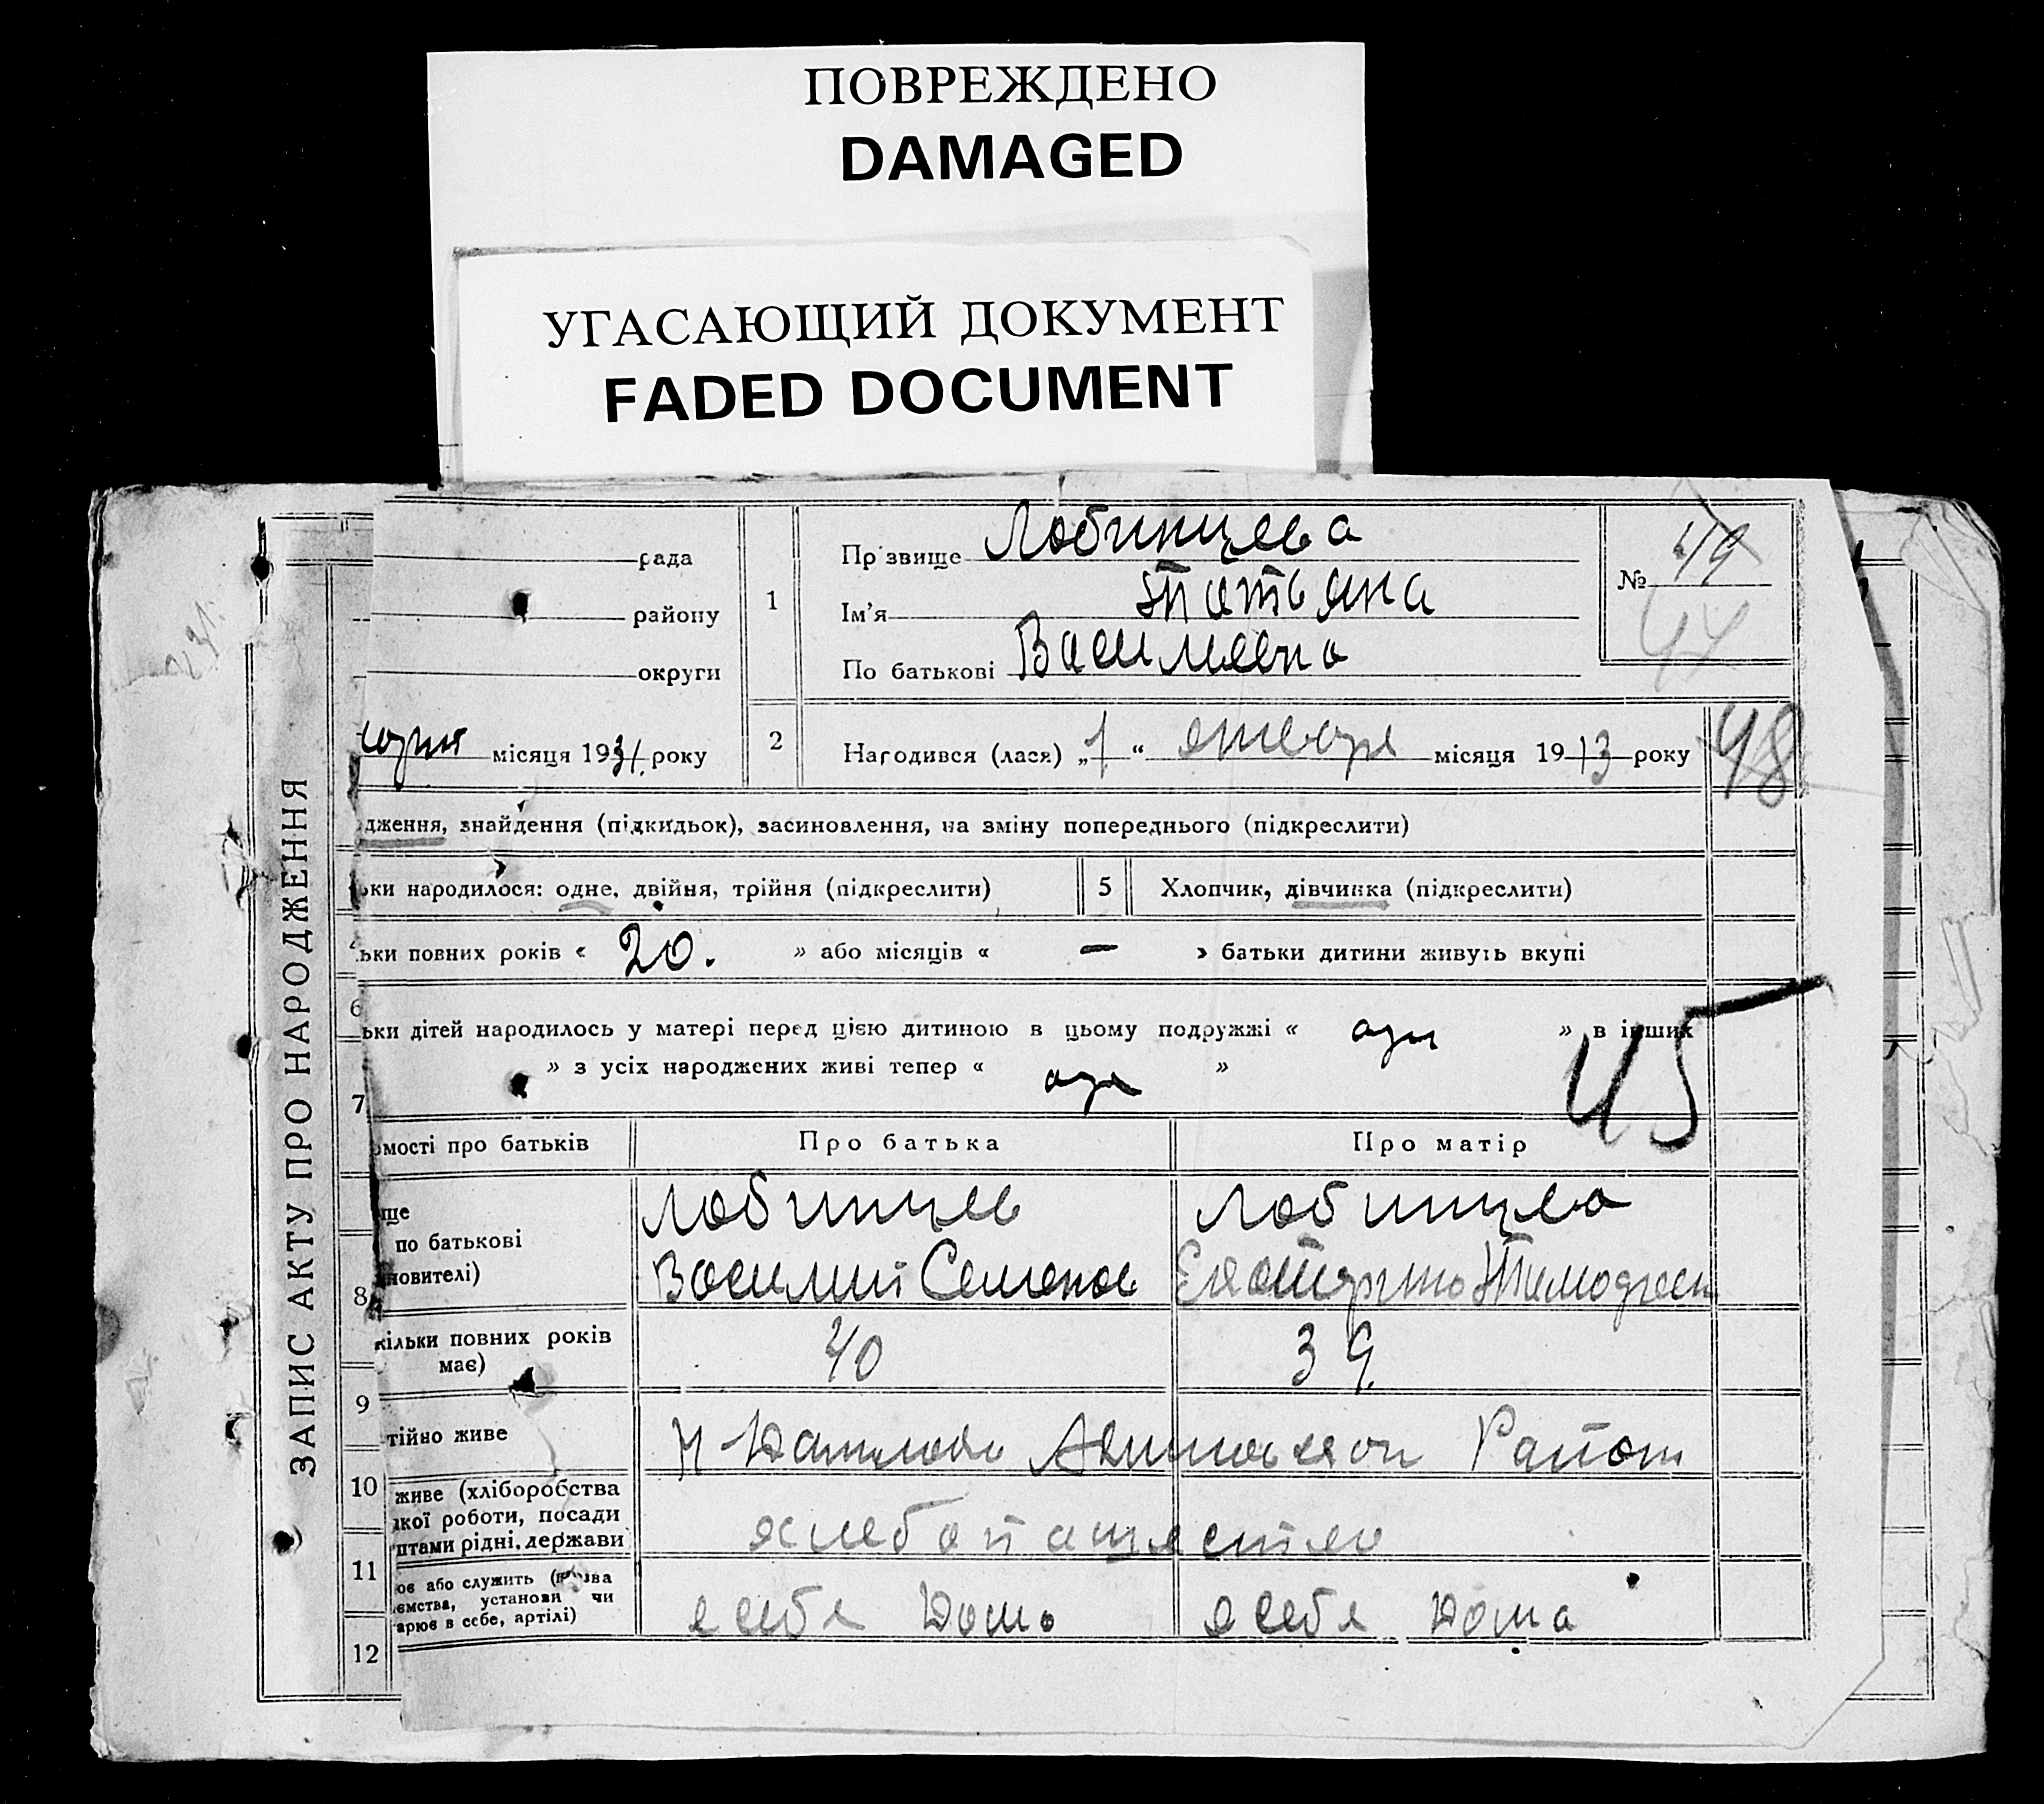 ПОВРЕЖДЕНО
DAMAGED
УГАСАЮЩИЙ ДОКУМЕНТ
FADED DOCUMENT
ЗАПИС АКТУ ПРО НАРОДЖЕННЯ
рада
району
округи
місяця 1931 року
1
Прізвище Лобинцева
Ім'я Татьяна
По батькові Васильевна
№ 49
44
2
Народився (лася) „1“ января місяця 1913 року
48
дження, знайдення (підкидьок), засиновлення, на зміну попереднього (підкреслити)
ьки народилося: одне, двійня, трійня (підкреслити)
5
Хлопчик, дівчинка (підкреслити)
ьки повних років « 20. » або місяців « — » батьки дитини живуть вкупі
6
ьки дітей народилось у матері перед цією дитиною в цьому подружжі « » в інших
» з усіх народжених живі тепер « »
45
7
омості про батьків
Про батька
Про матір
ще
по батькові
новителі)
Лобинцев
Василий Семенов
Лобинцева
Екатерина Тимофеев
8
кільки повних років
має)
40
39
9
тійно живе
Район
10
живе (хліборобства
кої роботи, посади
птами рідні, держави
хлебопашество
11
ює або служить (назва
ємства, установи чи
арює в себе, артілі)
у себя дома
у себя дома
12